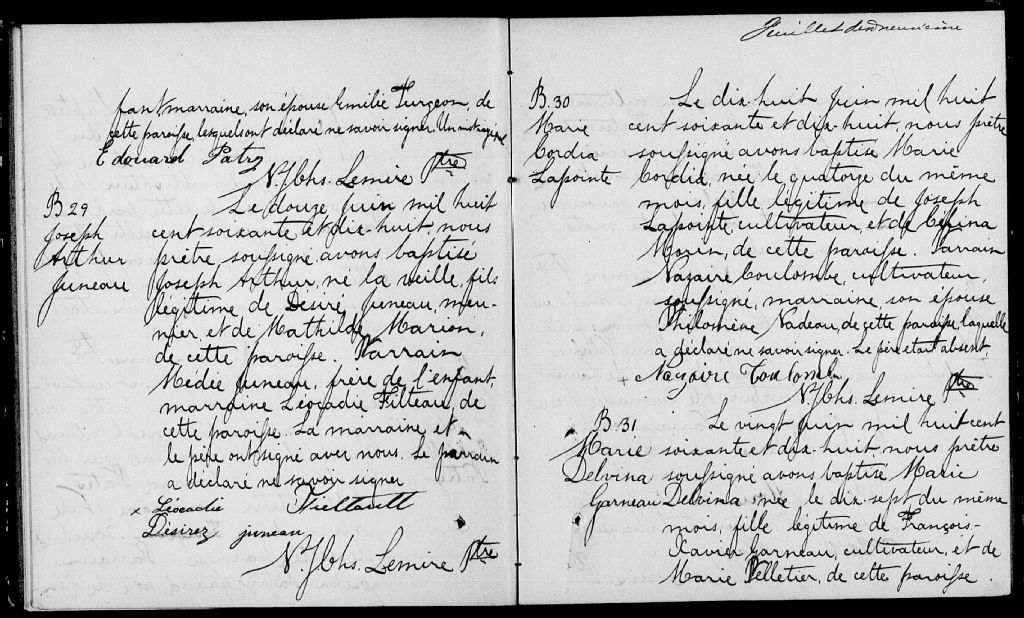 fant, marraine, son épouse Emilie Turgeon, de
cette paroisse, lesquels ont déclaré ne savoir signer. Un mot rayé nul
Edouard Patry
N. Jbhs. Lemire Ptre
B 29
Joseph
Arthur
Juneau
Le douze juin mil huit
cent soixante et dix-huit, nous
prêtre soussigné, avons baptisé
Joseph Arthur, né la veille, fils
légitime de Desiré Juneau, meu-
nier, et de Mathilde Marion,
de cette paroisse. Parrain
Médée Juneau, frère de l'enfant,
marraine Léocadie Filteau, de
cette paroisse. La marraine et
le père ont signé avec nous. Le parrain
a déclaré ne savoir signer
x Léocadie Fieltault
Désirez juneau
N. Jbhs. Lemire Ptre
Feuillet dixneuvième
B. 30
Marie
Cordia
Lapointe
Le dix-huit juin mil huit
cent soixante et dix-huit, nous prêtre
soussigné avons baptisé Marie
Cordia, née le quatorze du même
mois, fille légitime de Joseph
Lapointe, cultivateur, et de Célina
Morin, de cette paroisse. Parrain
Nazaire Coulombe, cultivateur,
soussigné, marraine, son épouse
Philomène Nadeau, de cette paroisse, laquelle
a déclaré ne savoir signer. Le père était absent
+ Nazaire Coulombe
N. Jbhs. Lemire Ptre
B. 31
Marie
Delvina
Garneau
Le vingt juin mil huit cent
soixante et dix-huit, nous prêtre
soussigné avons baptisé Marie
Delvina, née le dix-sept du même
mois, fille légitime de François-
Xavier Garneau, cultivateur, et de
Marie Pelletier, de cette paroisse.